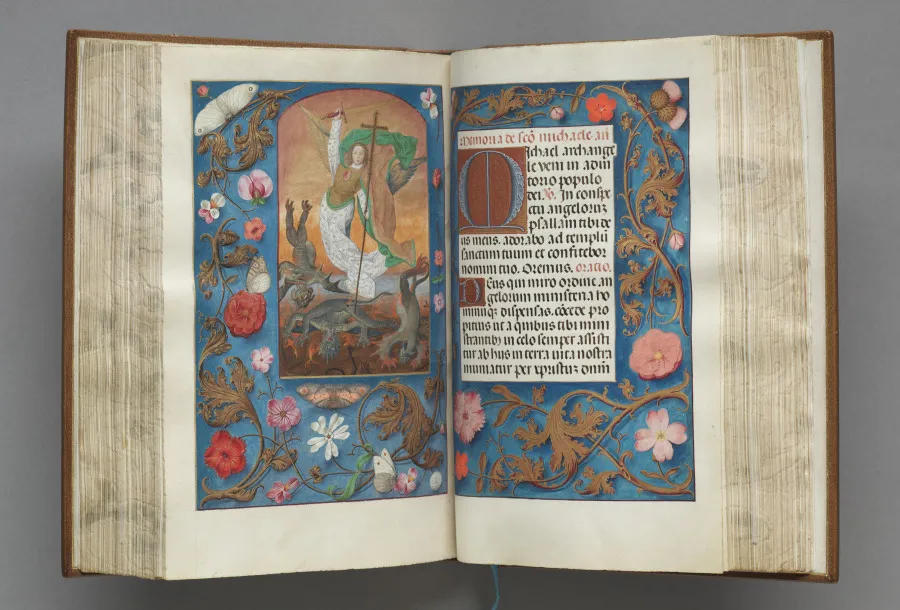 Memoria de sc̄o michaele an
Michael archange
le veni in adiu
torio populo
dei. V. In conspe
ctu angelorum
psallam tibi de
us meus. adorabo ad templū
sanctum tuum et confitebor
nomini tuo. Oremus. oratio.
Deus qui miro ordine an
gelorum ministeria ho
minūq; dispensas. cōcede pro
pitius ut a quibus tibi mini
strantibus in celo semper assisti
tur ab hiis in terra uita nostra
muniatur per xpristum dn̄m